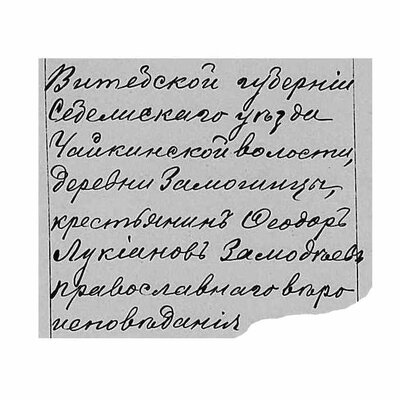 Витебской губерніи
Себежскаго уѣзда
Чайкинской волости,
деревни Замогильцы,
крестьянинъ Ѳеодоръ
Лукіановъ
православнаго вѣро
исповѣданія